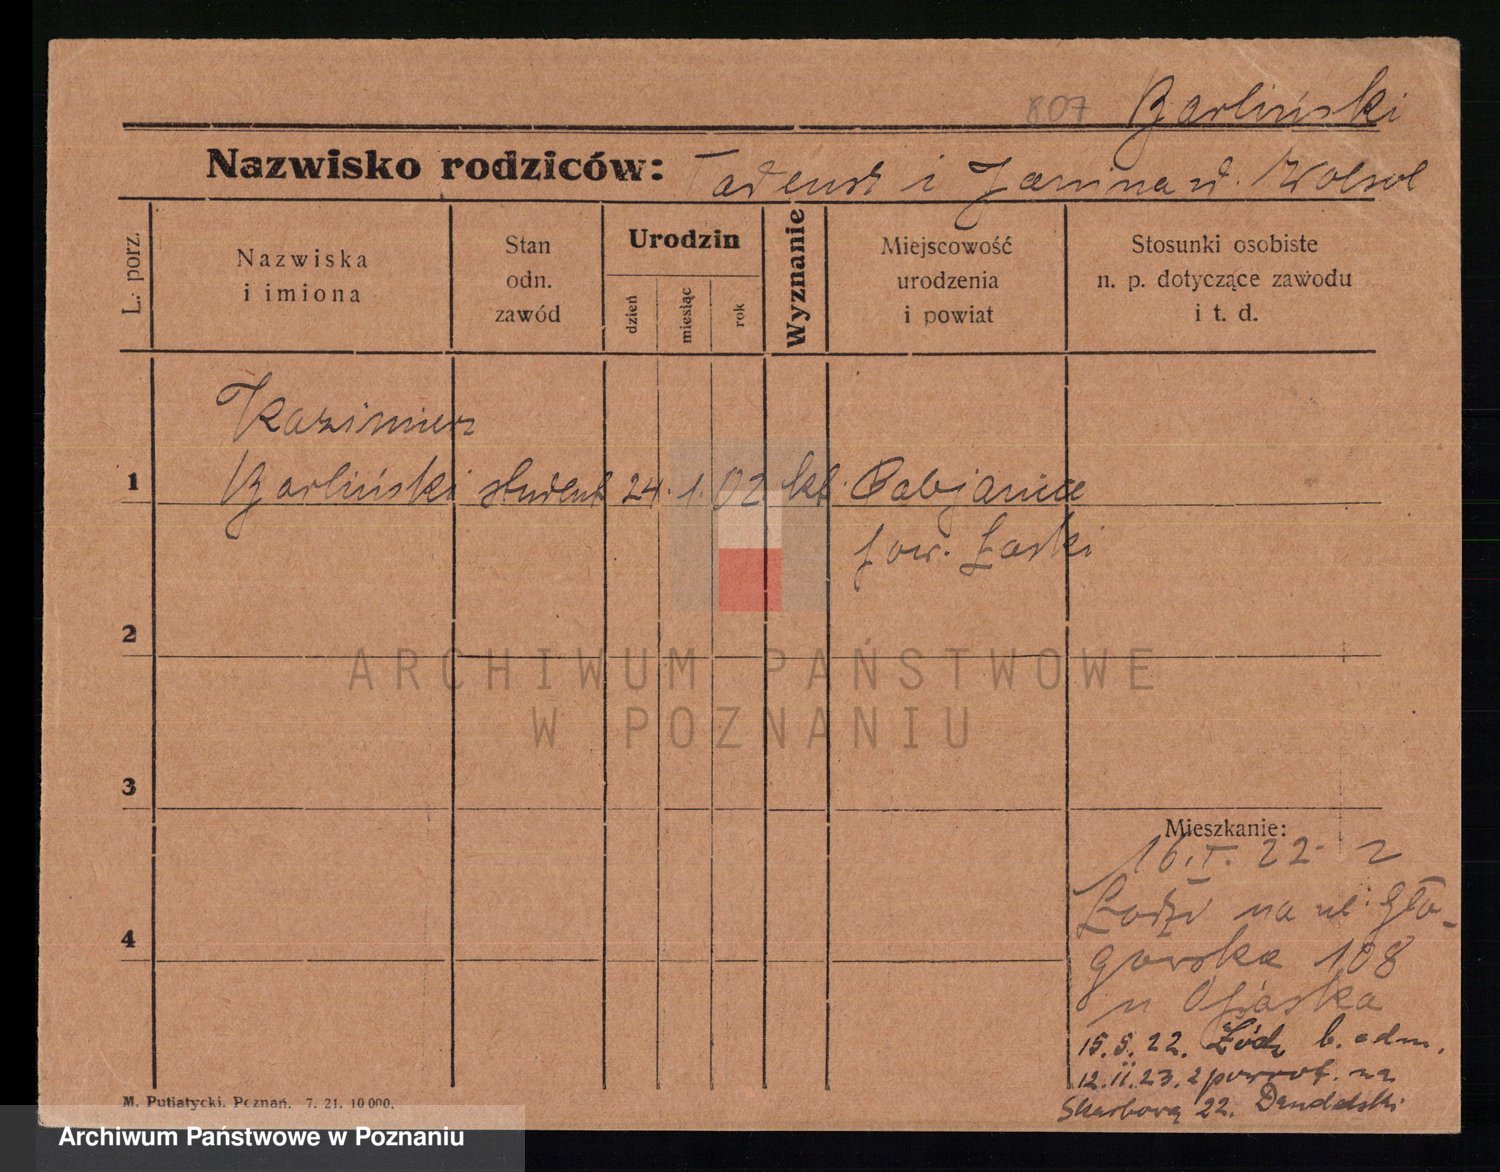 807 Barliński
Nazwisko rodziców: Tadeusz i Janina d.
L. porz.
Nazwiska
i imiona
Stan
odn.
zawód
Urodzin
dzień
miesiąc
rok
Wyznanie
Miejscowość
urodzenia
i powiat
Stosunki osobiste
n. p. dotyczące zawodu
i t. d.
Kazimierz
1 Barliński student 24. 1. 02 kt. Pabjanice
pow. Łaski
2
ARCHIWUM PAŃSTWOWE
W POZNANIU
3
Mieszkanie:
16. I. 22. z
Łodzi na ul. Gło-
4
gowska 108
u
15. 5. 22. Łódź b. adm.
12. II. 23. z powrot. na
Skarbową 22.
M. Putiatycki. Poznań. 7. 21. 10 000.
Archiwum Państwowe w Poznaniu